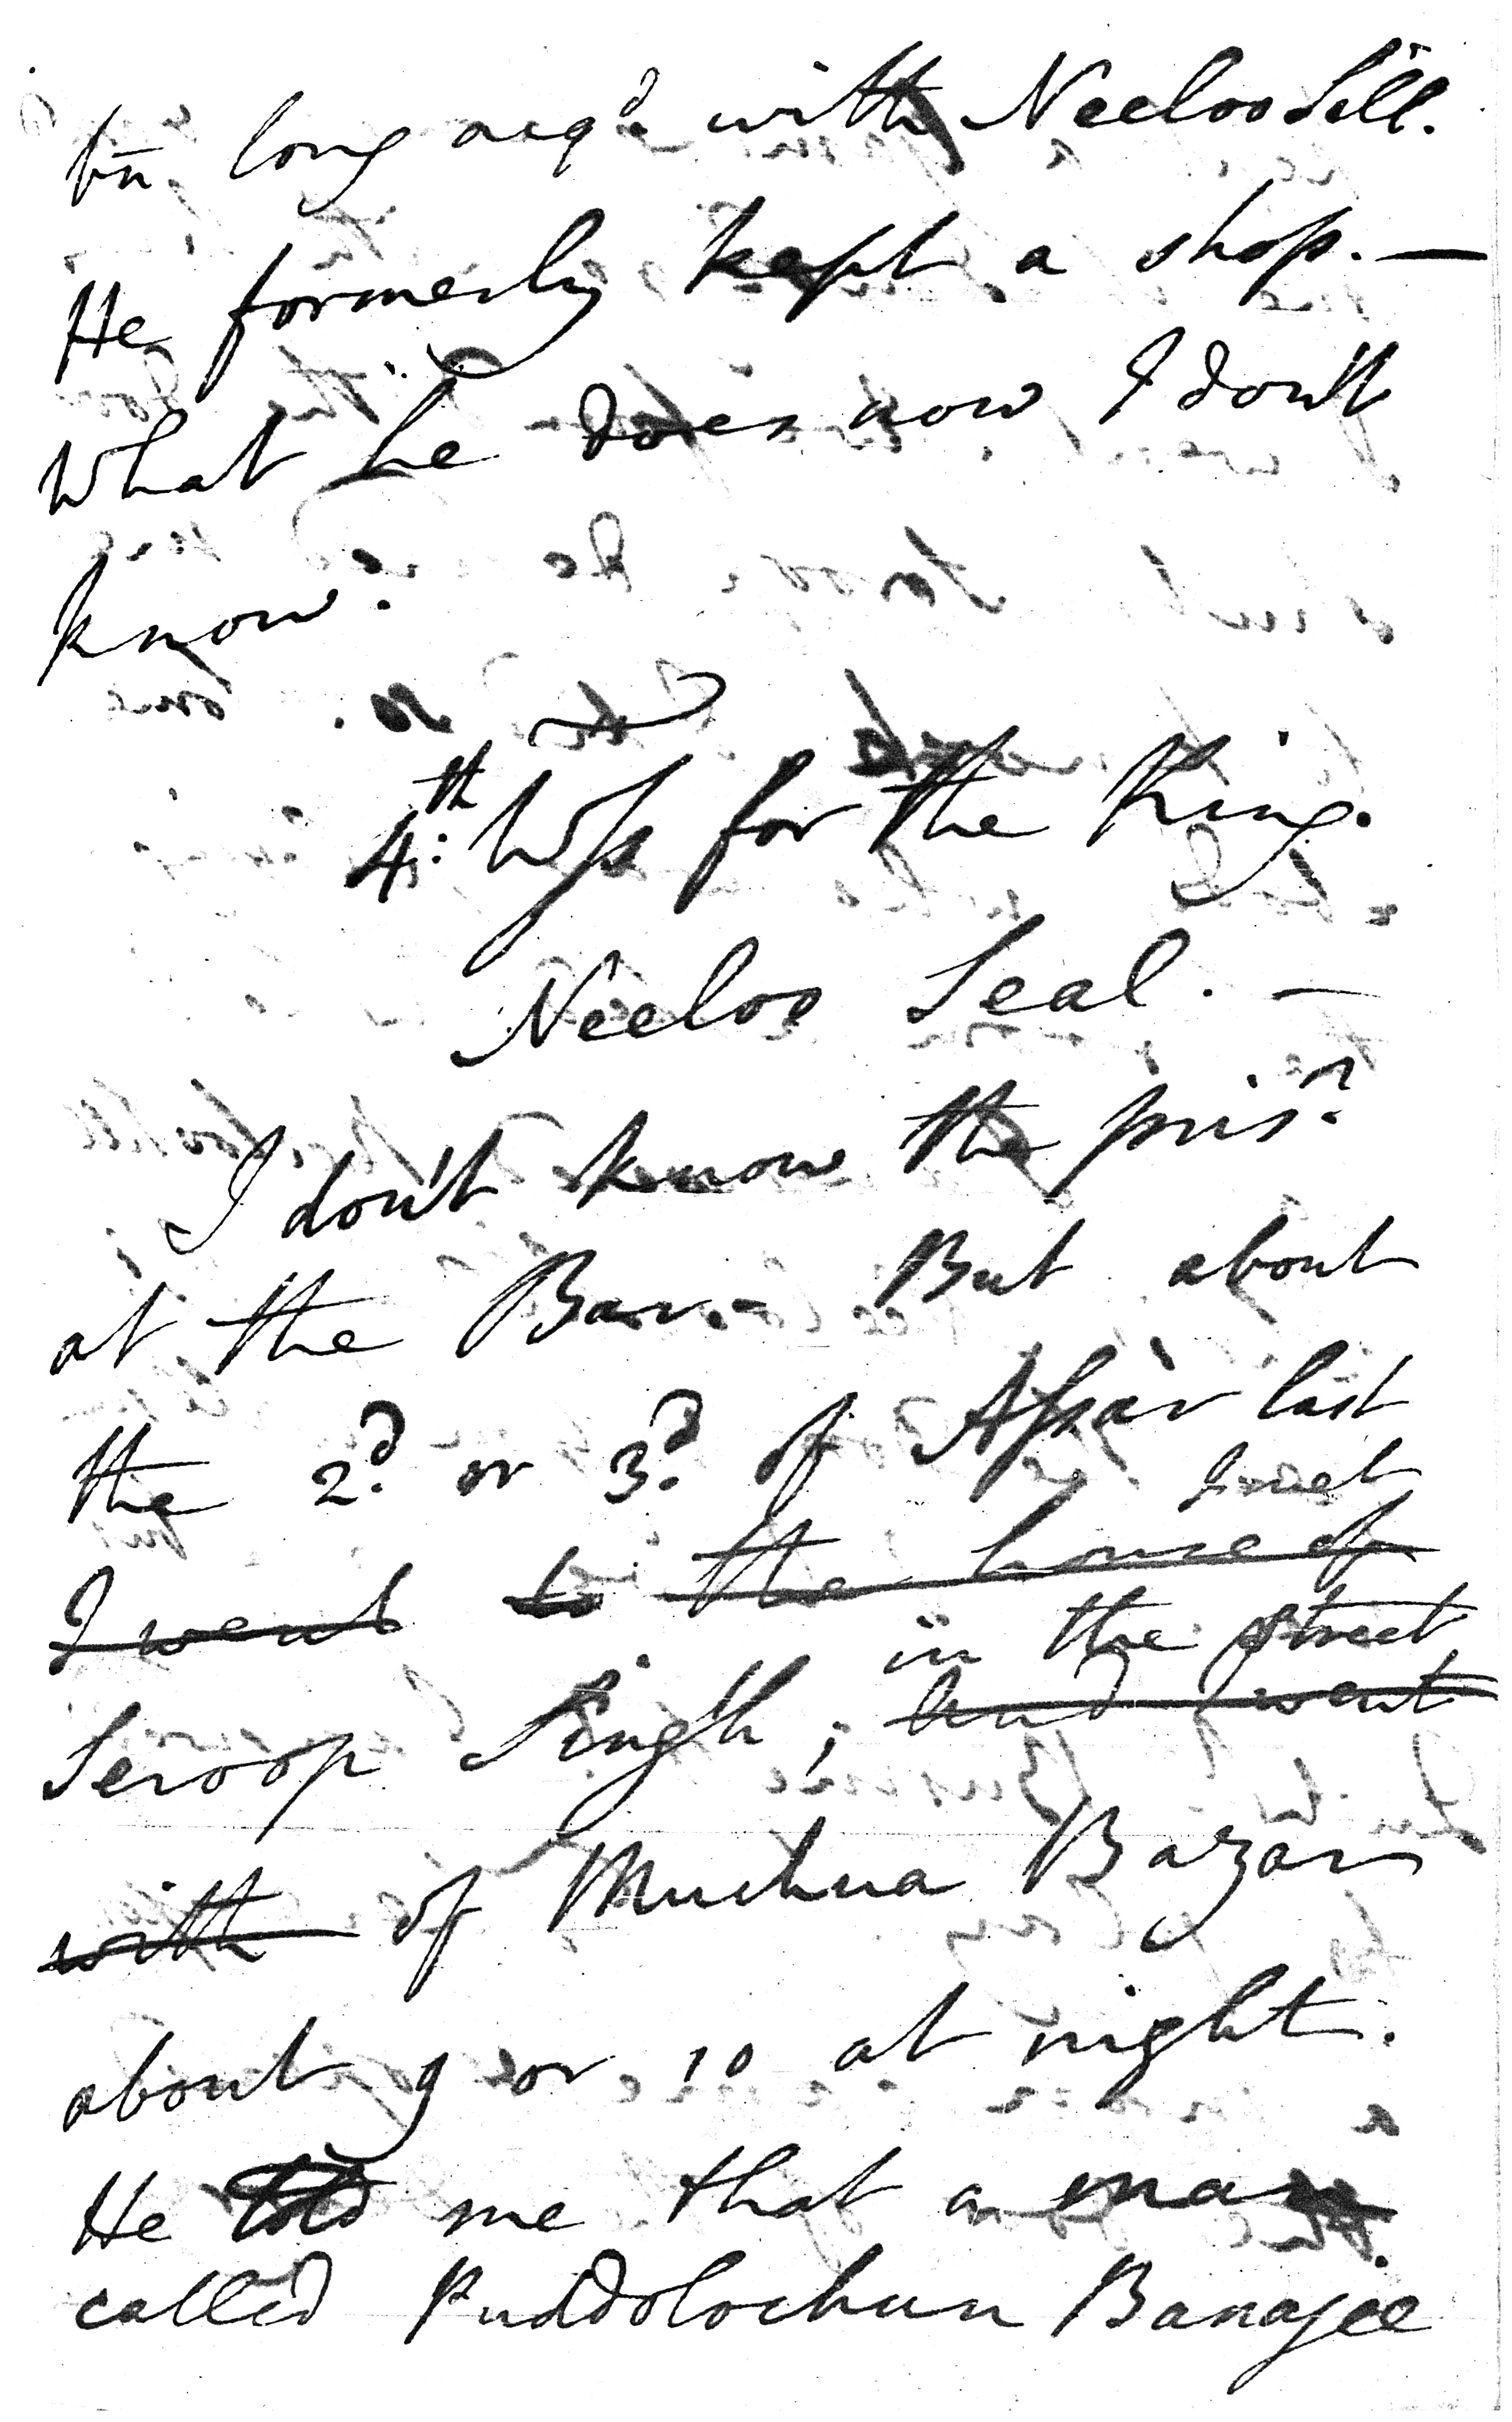 bn long acqd. with Neeloo Sell.
He formerly kept a shop. —
What he does now I don't
know.
4th: Wss for the King.
Neeloo Seal. —
I don't know the prisr.
at the Bar. - But about
the 2d. or 3d. of Assar last
I met
I went to the house of
in the street
Seroop Singh, and went
with of Muchua Bazar
about 9 or 10 at night.
He told me that a man
called Puddolochun Banajee